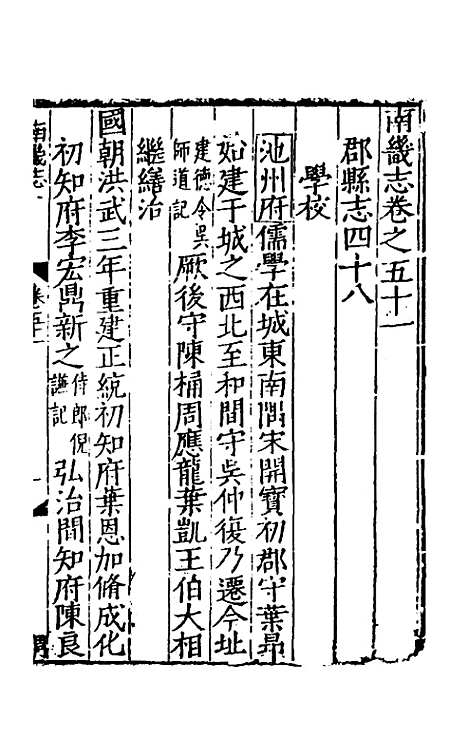 南畿志卷之五十一
郡縣志四十八
學校
池州府儒學在城東南隅宋開寶初郡守葉昻
始建于城之西北至和間守吳仲復乃遷今址
建德令吳師道記厥後守陳桷周應龍葉凱王伯大相
繼繕治
國朝洪武三年重建正統初知府葉恩加脩成化
初知府李宏鼎新之侍郎倪謙記弘治間知府陳良
南畿志 卷五十一 一